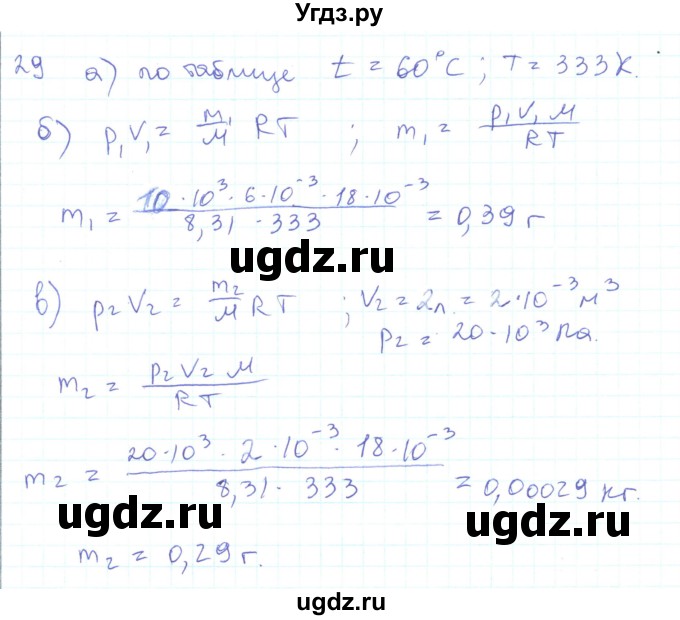 Угдз.ру
29 а) по таблице t = 60°C; T = 333K.
б) p₁V₁ = m₁/M RT ; m₁ = p₁V₁M/RT
m₁ = 10·10³·6·10⁻³·18·10⁻³/8,31·333 = 0,39 г
ugdz.ru ugdz.ru
в) p₂V₂ = m₂/M RT ; V₂ = 2л = 2·10⁻³ м³
p₂ = 20·10³ Па.
m₂ = p₂V₂M/RT
m₂ = 20·10³·2·10⁻³·18·10⁻³/8,31·333 = 0,00029 кг.
ugdz.ru ugdz.ru
m₂ = 0,29 г.
ugdz.ru